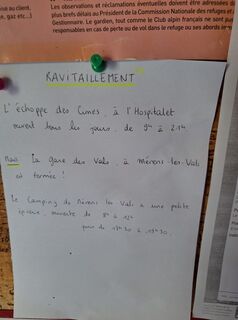 Les observations et réclamations éventuelles doivent être adressées da
plus brefs délais au Président de la Commission Nationale des refuges et
Gestionnaire. Le gardien, tout comme le Club alpin français ne sont pas
responsables en cas de perte ou de vol dans le refuge ou ses abords
RAVITAILLEMENT
L'échoppe des Cimes, à l'Hospitalet
ouvert tous les jours, de 9h à 21h
Mais la gare des Vals, à Mérens-les-Vals
est fermée !
Le Camping de Mérens les Vals a une petite
épicerie, ouverte de 8h à 12h
puis de 17h30 à 19h30.